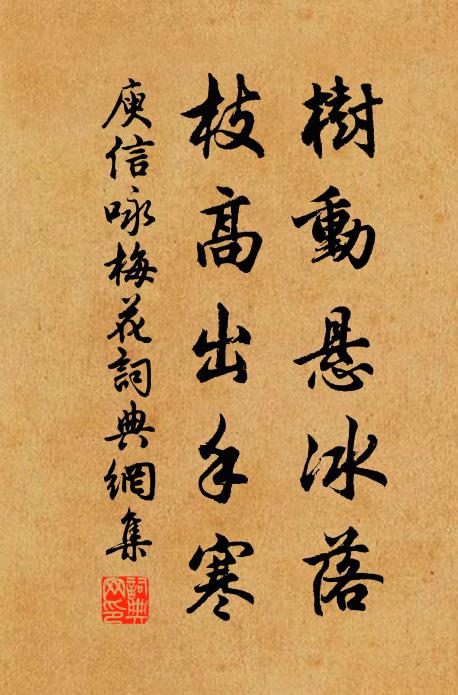 樹動懸冰落
枝高出手寒
庾信咏梅花詞典網集
詞典
网印